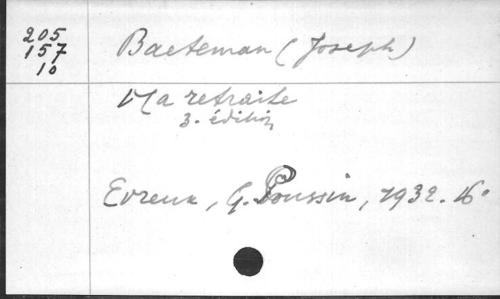 205
157
10
Baeteman (Joseph)
Ma retraite
3. édition
Evreux, G. Poussin, 1932. 16°